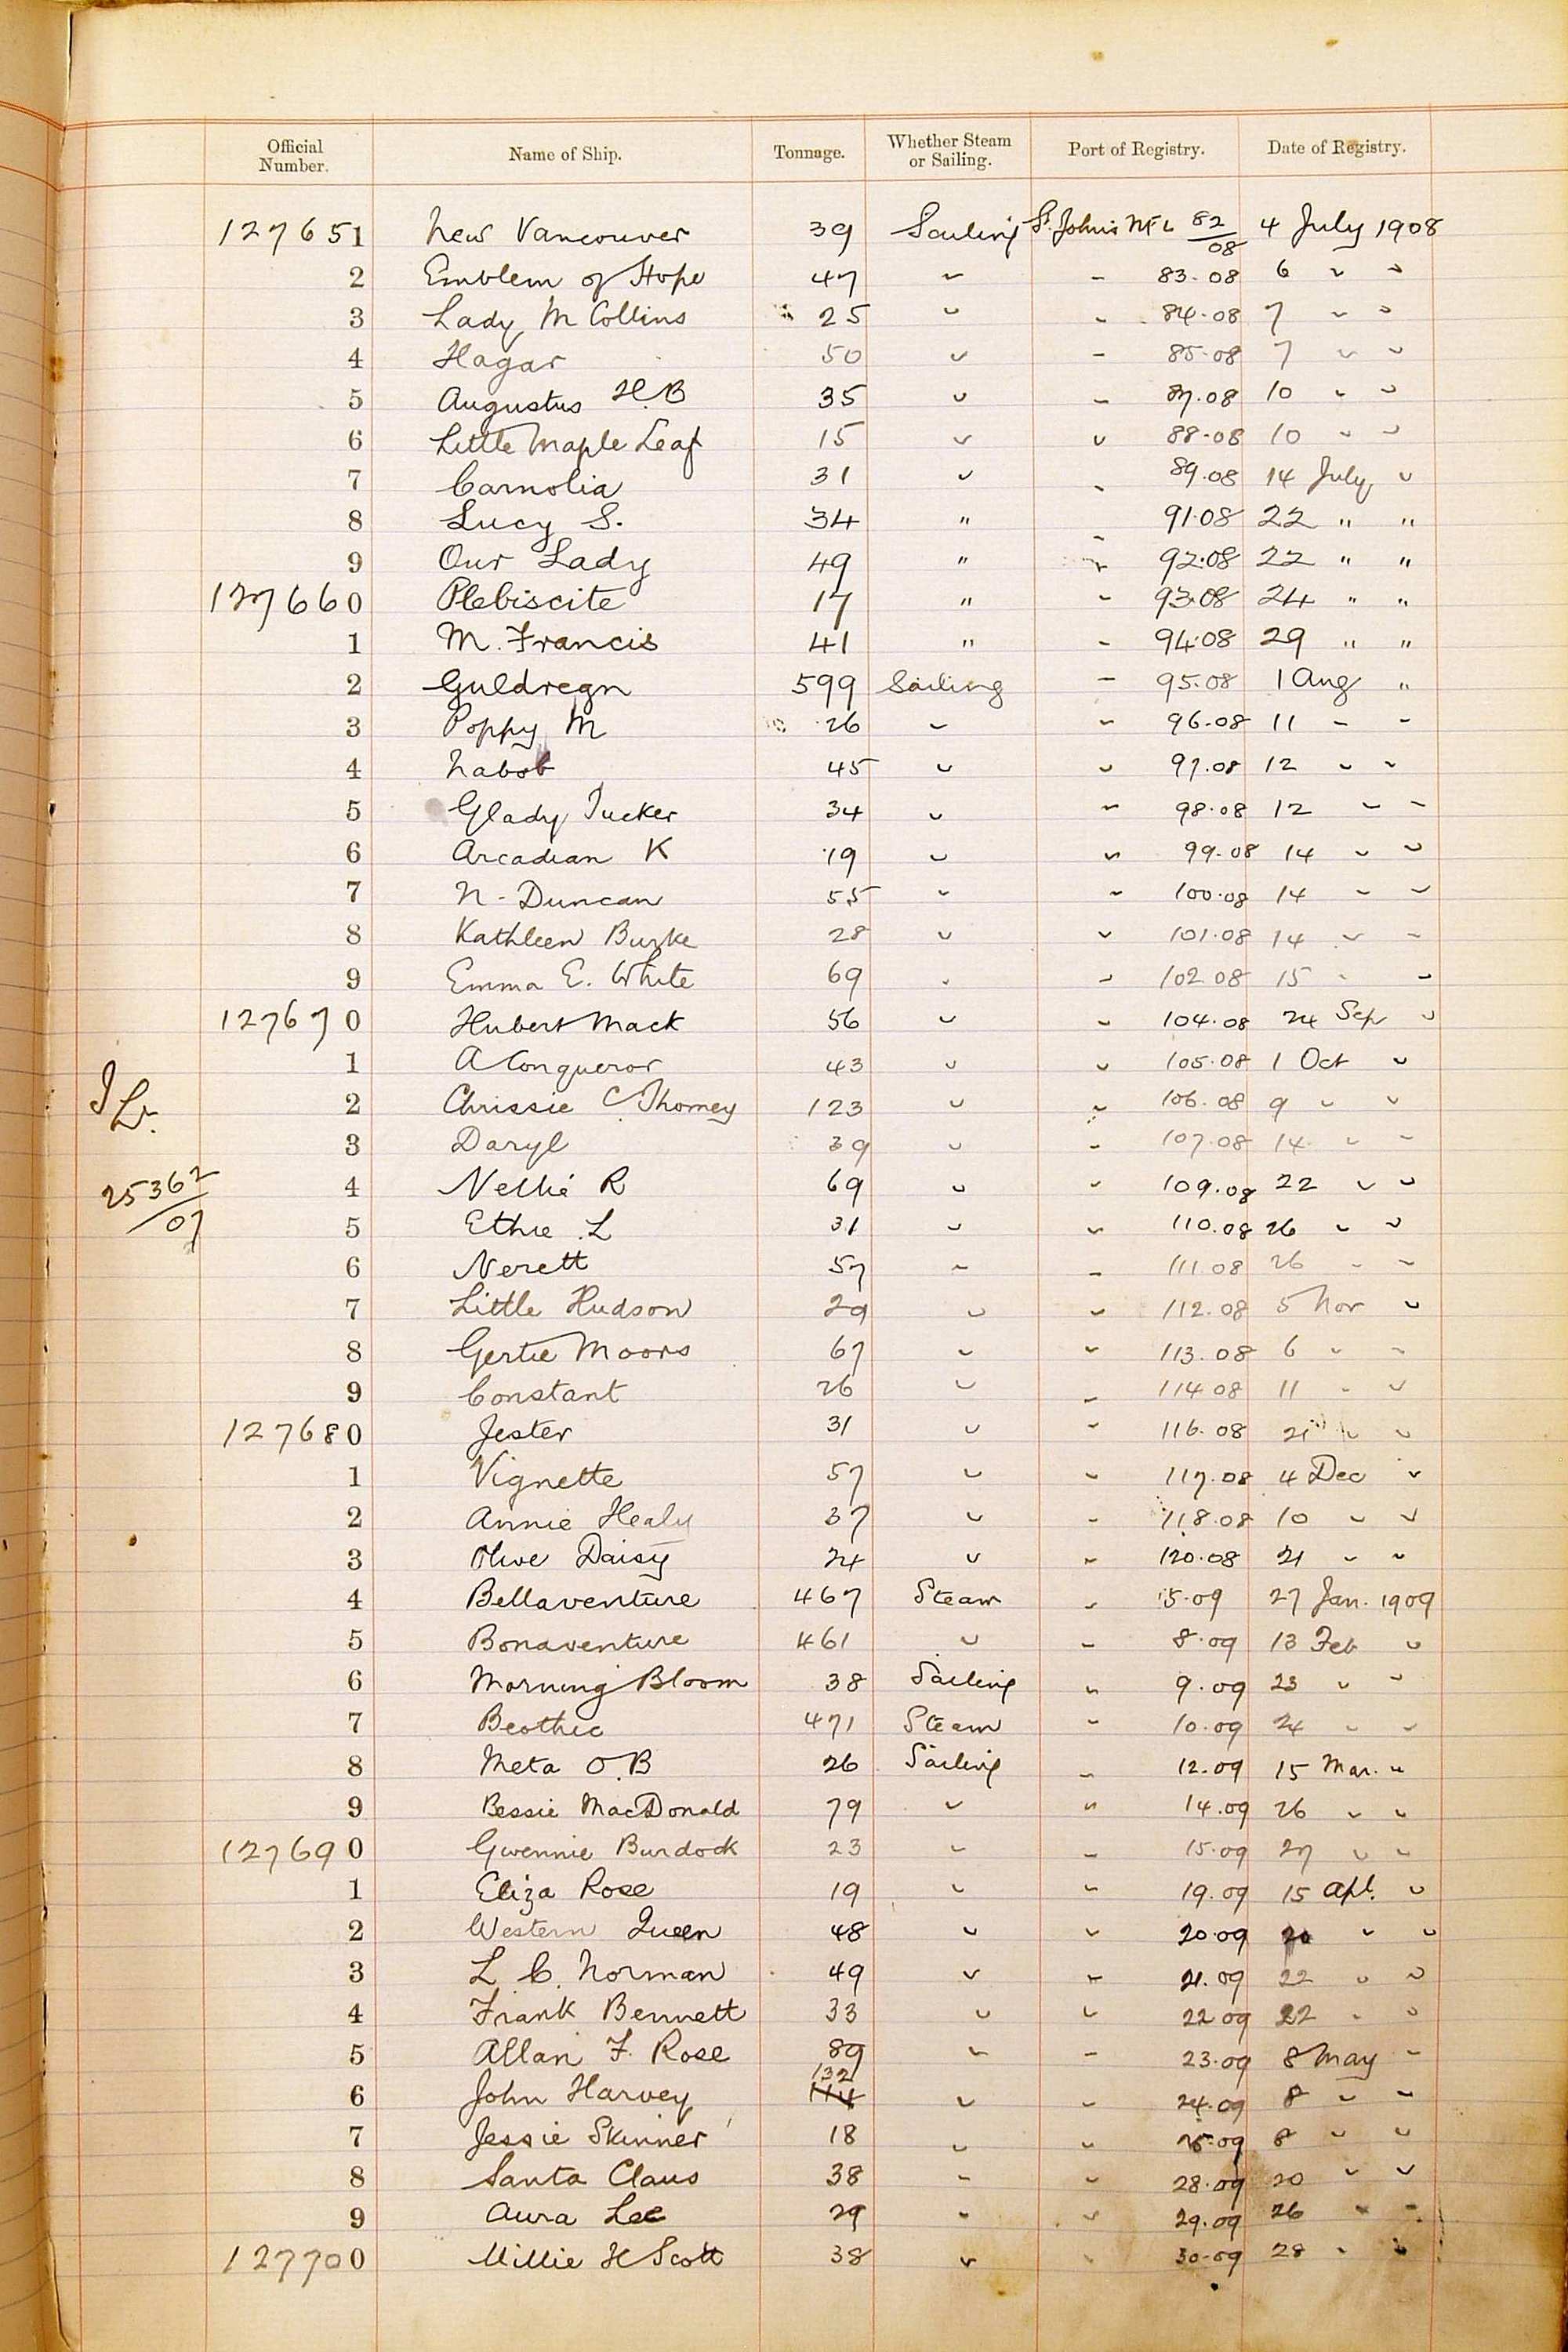 Official Number. Name of Ship. Tonnage. Whether Steam or Sailing. Port of Registry. Date of Registry.
127651 New Vancouver 39 Sailing St. Johns NFL 82/08 4 July 1908
2 Emblem of Hope 47 " " 83.08 6 " "
3 Lady M Collins 25 " " 84.08 7 " "
4 Hagar 50 " " 85.08 7 " "
5 Augustus H.B 35 " " 87.08 10 " "
6 Little Maple Leaf 15 " " 88.08 10 " "
7 Carnolia 31 " " 89.08 14 July "
8 Lucy S. 34 " " 91.08 22 " "
9 Our Lady 49 " " 92.08 22 " "
127660 Plebiscite 17 " " 93.08 24 " "
1 M. Francis 41 " " 94.08 29 " "
2 Guldregn 599 Sailing " 95.08 1 Aug "
3 Poppy M 26 " " 96.08 11 " "
4 Nabob 45 " " 97.08 12 " "
5 Glady Tucker 34 " " 98.08 12 " "
6 Arcadian K 19 " " 99.08 14 " "
7 N. Duncan 55 " " 100.08 14 " "
8 Kathleen Burke 28 " " 101.08 14 " "
9 Emma E. White 69 " " 102.08 15 " "
127670 Hubert Mack 56 " " 104.08 24 Sep "
1 A Conqueror 43 " " 105.08 1 Oct "
2 Chrissie C Thomey 123 " " 106.08 9 " "
3 Daryl 39 " " 107.08 14 " "
25362/07
4 Nellie R 69 " " 109.08 22 " "
5 Ethie L 31 " " 110.08 26 " "
6 Nerett 57 " " 111.08 26 " "
7 Little Hudson 29 " " 112.08 5 Nov "
8 Gertie Moors 67 " " 113.08 6 " "
9 Constant 26 " " 114.08 11 " "
127680 Jester 31 " " 116.08 21 " "
1 Vignette 57 " " 117.08 4 Dec "
2 Annie Healy 37 " " 118.08 10 " "
3 Olive Daisy 24 " " 120.08 21 " "
4 Bellaventure 467 Steam " 5.09 27 Jan. 1909
5 Bonaventure 461 " " 8.09 13 Feb "
6 Morning Bloom 38 Sailing " 9.09 23 " "
7 Beothic 471 Steam " 10.09 24 " "
8 Meta O.B 26 Sailing " 12.09 15 Mar. "
9 Bessie MacDonald 79 " " 14.09 26 " "
127690 Gwennie Burdock 23 " " 15.09 27 " "
1 Eliza Rose 19 " " 19.09 15 Apl. "
2 Western Queen 48 " " 20.09 20 " "
3 L C. Norman 49 " " 21.09 22 " "
4 Frank Bennett 33 " " 22.09 22 " "
5 Allan F. Rose 89 " " 23.09 8 May "
6 John Harvey 132 114 " " 24.09 8 " "
7 Jessie Skinner 18 " " 25.09 8 " "
8 Santa Claus 38 " " 28.09 20 " "
9 Aura Lee 29 " " 29.09 26 " "
127700 Millie H Scott 38 " " 30.09 28 " "